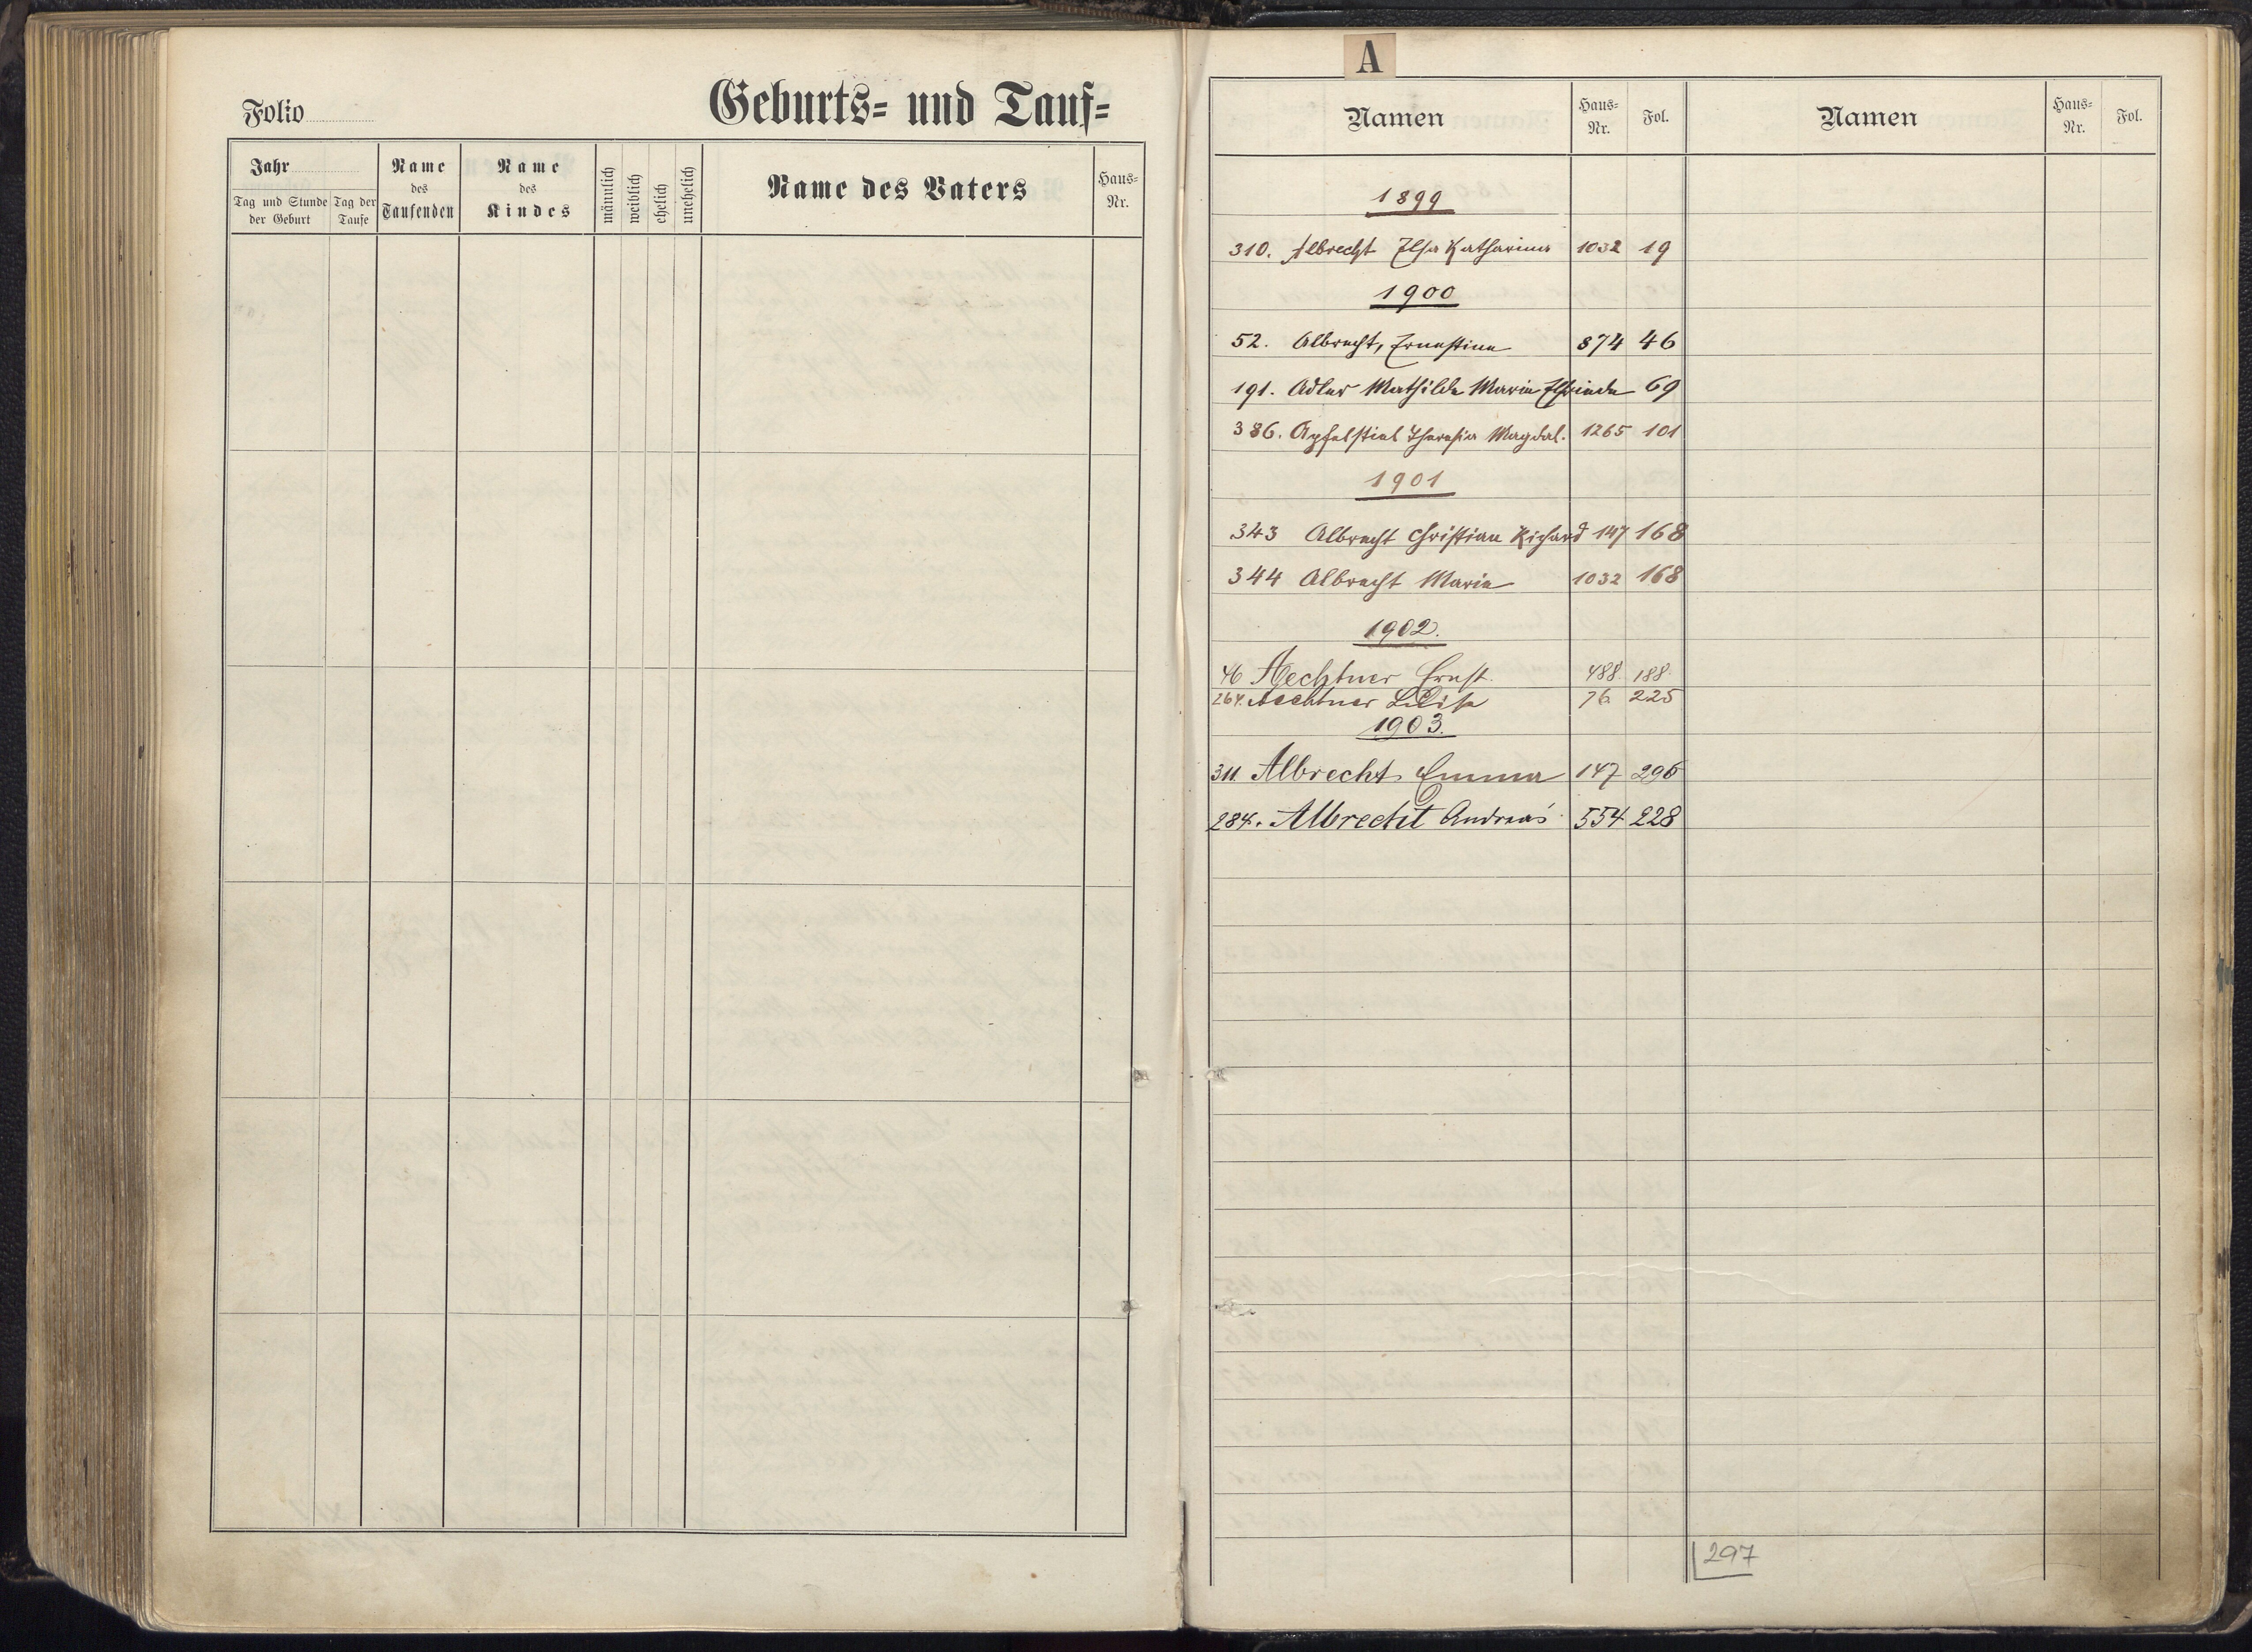 Folio
Geburts= und Tauf=
Jahr
Tag und Stunde der Geburt
Tag der Taufe
Name des Taufenden
Name des Kindes
männlich
weiblich
ehelich
unehelich
Name des Vaters
Haus=Nr.
A
Namen Haus=Nr. Fol. Namen Haus=Nr. Fol.
1899
310. Albrecht Ilsa Katharina 1032 19
1900
52. Albrecht, Ernestine 874 46
191. Adler Mathilde Marie Elfriede 69
386. Apfelstiel Theresia Magdal. 1265 101
1901
343 Albrecht Christian Richard 147 168
344 Albrecht Marie 1032 168
1902.
46 Aechtner Ernst. 488 188.
264. Aechtner 76 225
1903.
311. Albrecht Emma 147 296
284. Albrecht Andreas 554 228
297